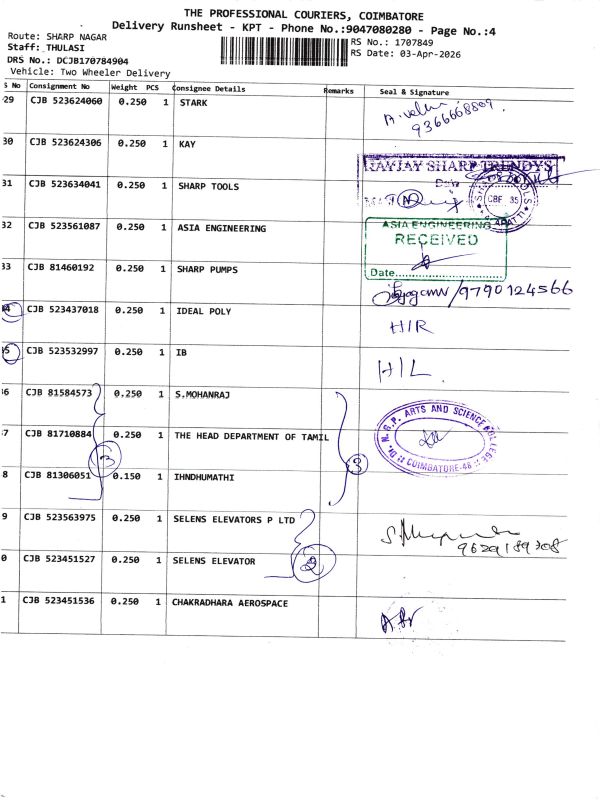 THE PROFESSIONAL COURIERS, COIMBATORE
Delivery Runsheet - KPT - Phone No.:9047080280 - Page No.:4
Route: SHARP NAGAR
RS No.: 1707849
Staff: THULASI
RS Date: 03-Apr-2026
DRS No.: DCJB170784904
Vehicle: Two Wheeler Delivery
S No Consignment No Weight PCS Consignee Details Remarks Seal & Signature
29 CJB 523624060 0.250 1 STARK
9366668809
30 CJB 523624306 0.250 1 KAY
RAYJAY SHARP TRENDYS
31 CJB 523634041 0.250 1 SHARP TOOLS
CBE 35
32 CJB 523561087 0.250 1 ASIA ENGINEERING
ASIA ENGINEERING
RECEIVED
Date
33 CJB 81460192 0.250 1 SHARP PUMPS
/9790124566
34 CJB 523437018 0.250 1 IDEAL POLY
H/R
35 CJB 523532997 0.250 1 IB
H/L
36 CJB 81584573 0.250 1 S.MOHANRAJ
Dr. N.G.P. ARTS AND SCIENCE COLLEGE
COIMBATORE-48
37 CJB 81710884 0.250 1 THE HEAD DEPARTMENT OF TAMIL
3 3
38 CJB 81306051 0.150 1 IHNDHUMATHI
39 CJB 523563975 0.250 1 SELENS ELEVATORS P LTD
9629189308
40 CJB 523451527 0.250 1 SELENS ELEVATOR
2
41 CJB 523451536 0.250 1 CHAKRADHARA AEROSPACE